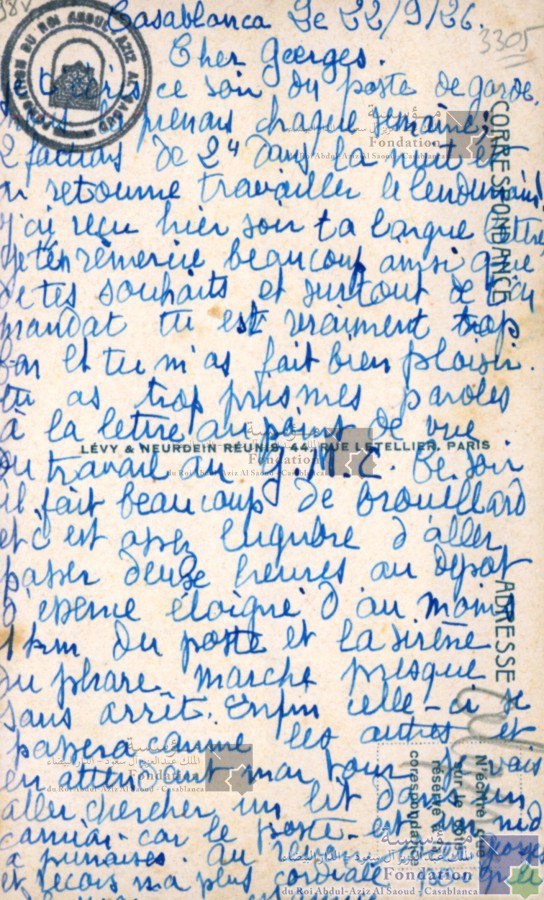 Casablanca Le 22/9/26.
3305
Cher Georges.
ce soir du poste de garde.
prenons chaque semaine;
2 factions de 2h dans la nuit et
on retourne travailler le lendemain
J'ai reçu hier soir ta longue lettre
je t'en remercie beaucoup ainsi que
de tes souhaits et surtout de
mandat tu est vraiment trop
bon et tu m'as fait bien plaisir.
tu as trop pris mes paroles
à la lettre au point de vue
du travail Ce soir
il fait beaucoup de brouillard
et c'est assez lugubre d'aller
passer deux heures au dépot
d'essence éloigné d'au moins
1 km du poste et la sirène
du phare marche presque
sans arrêt. Enfin celle-ci se
passera comme les autres et
en attendant mon tour je vais
aller chercher un lit dans un
camion car le poste est un nid
à punaises. Au revoir Georges
et reçois ma plus cordiale poignée
LÉVY & NEURDEIN RÉUNIS, 44, RUE LETELLIER, PARIS
CORRESPONDANCE
ADRESSE
N'écrire que
sur le côté
réservé à la
correspondance
FONDATION DU ROI ABDUL AZIZ
مؤسسة
الملك عبد العزيز آل سعود - الدار البيضاء
Fondation
du Roi Abdul-Aziz Al Saoud - Casablanca